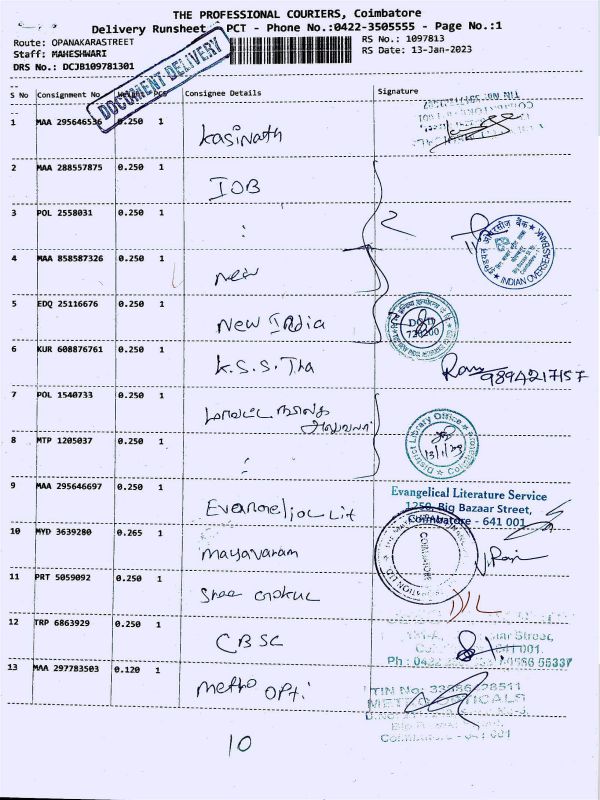 THE PROFESSIONAL COURIERS, Coimbatore
Delivery Runsheet - PCT - Phone No.:0422-3505555 - Page No.:1
Route: OPANAKARASTREET
RS No.: 1097813
Staff: MAHESHWARI
RS Date: 13-Jan-2023
DRS No.: DCJB109781301
DOCUMENT DELIVERY
S No Consignment No Weight PCS Consignee Details Signature
1 MAA 295646536 0.250 1 Kasinath
2 MAA 288557875 0.250 1 IOB
3 POL 2558031 0.250 1 :
4 MAA 858587326 0.250 1 New
INDIAN OVERSEAS BANK
5 EDQ 25116676 0.250 1 New India
6 KUR 608876761 0.250 1 K.S.S. Tha
9894217157
7 POL 1540733 0.250 1
District Library Office Coimbatore
13/1/23
8 MTP 1205037 0.250 1 :
9 MAA 295646697 0.250 1 Lit
Evangelical Literature Service
1250, Big Bazaar Street,
Coimbatore - 641 001
10 MYD 3639280 0.265 1 Mayavaram
COIMBATORE
11 PRT 5059092 0.250 1 Shree Gokul
12 TRP 6863929 0.250 1 CBSC
Street,
641 001.
Ph : 0422
55337
13 MAA 297783503 0.120 1 Metho Opti
TIN No:
28511
Coimbatore - 641 001
10